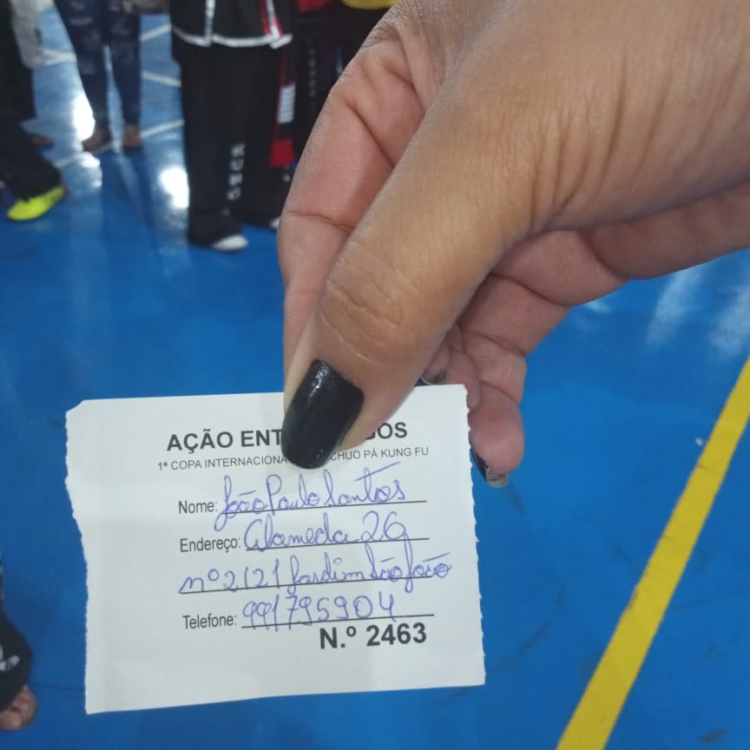 AÇÃO ENT OS
1ª COPA INTERNACIONA CHUO PÁ KUNG FU
Nome: João Paulo Santos
Endereço: Alameda 26
nº 2121 Jardim São João
Telefone: 991795904
N.º 2463